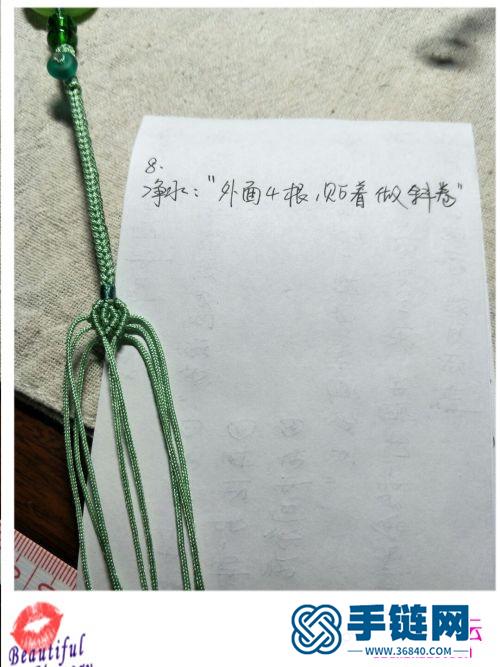 8.
净水："外面4根，贴着做斜卷"
Beautiful
手链网
WWW.36840.COM